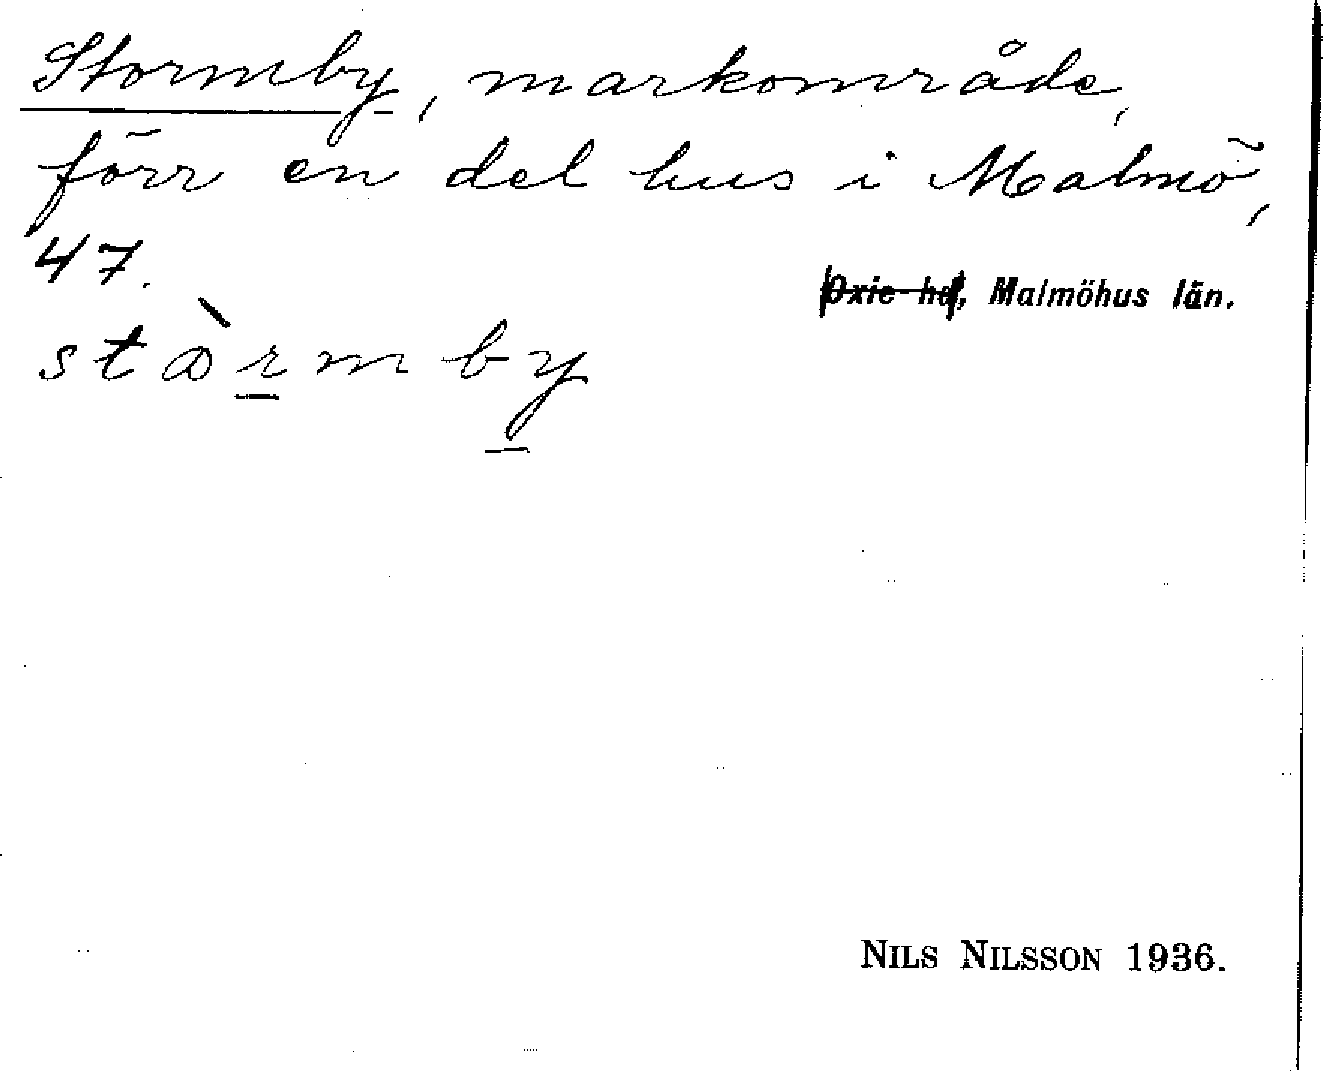 Stormby, markområde,
förr en del hus i Malmö,
47.
Oxie hd, Malmöhus län.
stòrmby
NILS NILSSON 1936.